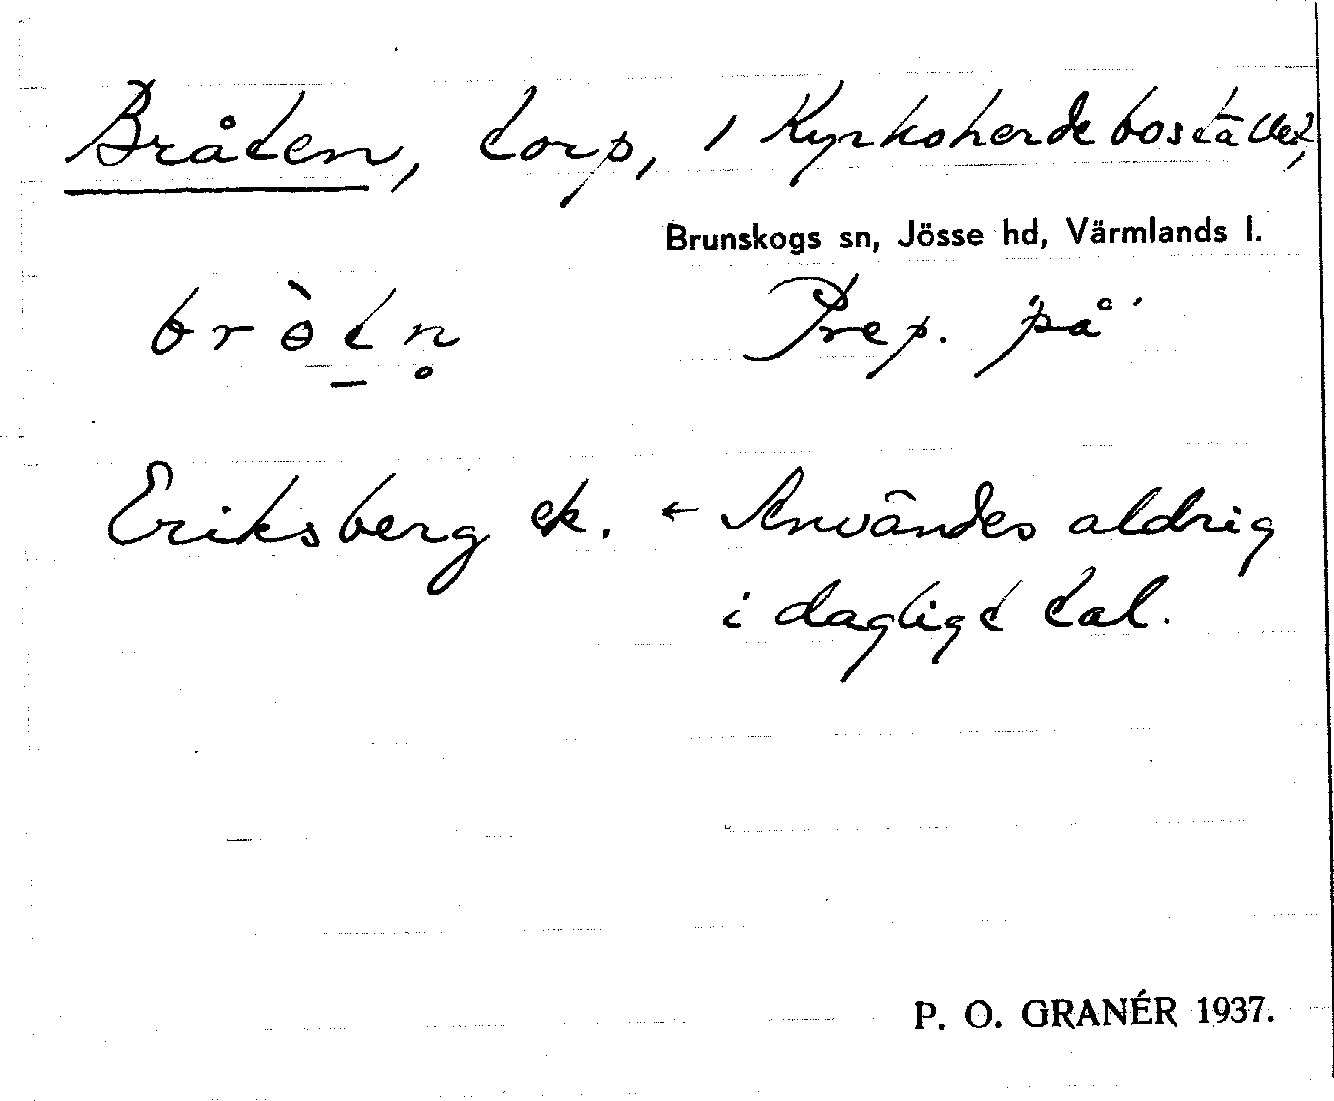 Bråten, torp, / Kyrkoherdebostället,
Brunskogs sn, Jösse hd, Värmlands l.
brɵ̀t̠n̥ Prep. "på"
Eriksberg ek. ← Användes aldrig
i dagligt tal.
P. O. GRANÉR 1937.